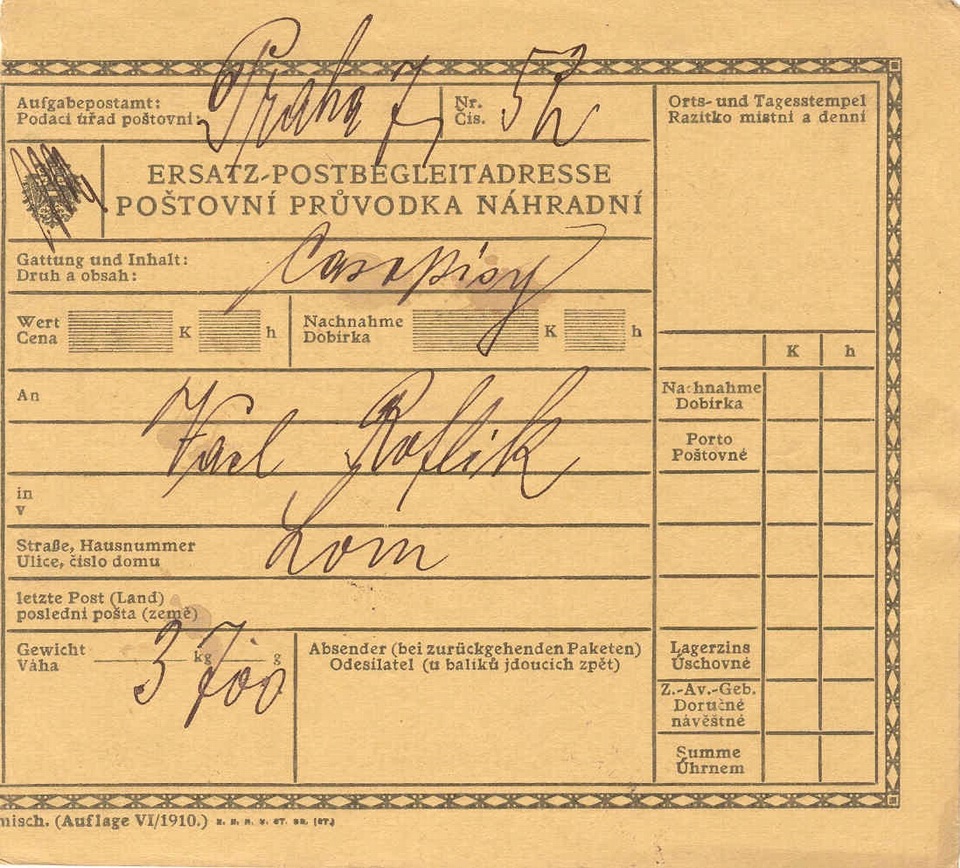 Aufgabepostamt: Praha 7, Nr. 52
Podací úřad poštovní: Čís.
Orts- und Tagesstempel
Razítko místní a denní
ERSATZ-POSTBEGLEITADRESSE
POŠTOVNÍ PRŮVODKA NÁHRADNÍ
Gattung und Inhalt: Časopisy
Druh a obsah:
Wert K h Nachnahme K h
Cena Dobírka
K h
An
Nachnahme
Dobírka
Vacl
Porto
Poštovné
in
v
Straße, Hausnummer Lom
Ulice, číslo domu
letzte Post (Land)
poslední pošta (země)
Gewicht kg g
Váha 3 700
Absender (bei zurückgehenden Paketen)
Odesílatel (u balíků jdoucích zpět)
Lagerzins
Úschovné
Z.-Av.-Geb.
Doručné
návěštné
Summe
Úhrnem
misch. (Auflage VI/1910.)